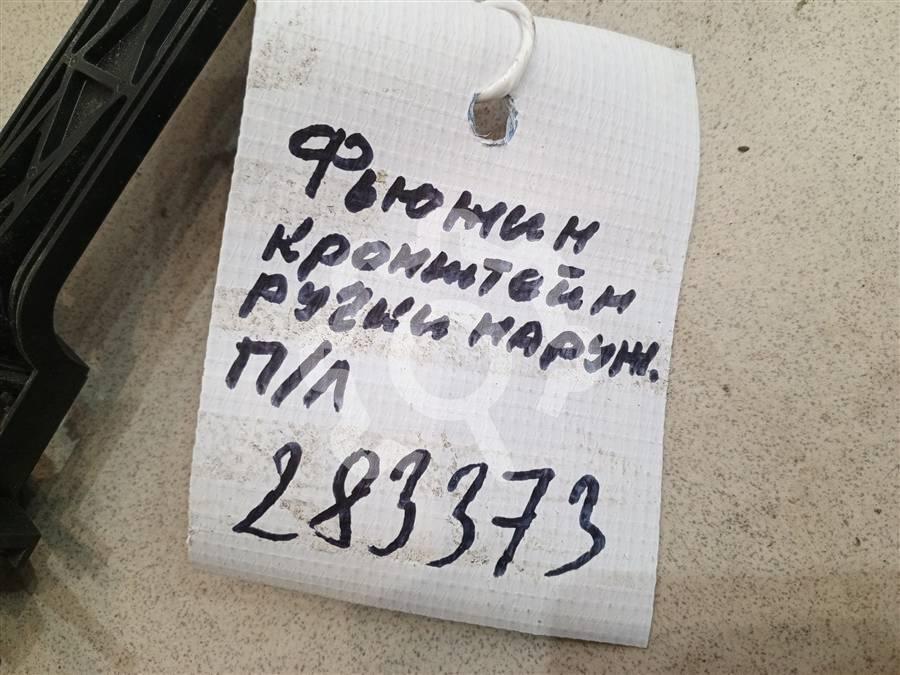 Фьюжин
кронштейн
ручки наруж.
П/Л
283373